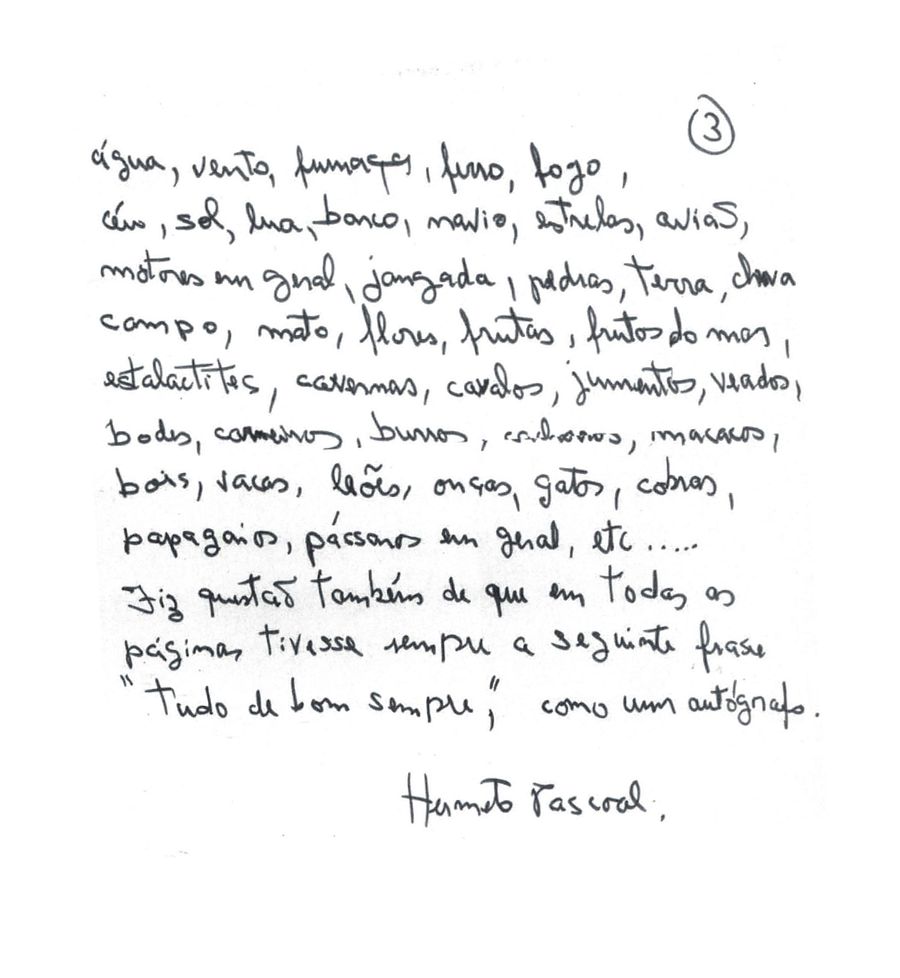 3
água, vento, fumaças, ferro, fogo,
céu, sol, lua, barco, navio, estrelas, avião,
motores em geral, jangada, pedras, terra, chuva
campo, mato, flores, frutas, frutos do mar,
estalactites, cavernas, cavalos, jumentos, veados,
bodes, carneiros, burros, cachorros, macacos,
bois, vacas, leões, onças, gatos, cobras,
papagaios, pássaros em geral, etc.....
Fiz questão também de que em todas as
páginas tivesse sempre a seguinte frase
"Tudo de bom sempre", como um autógrafo.
Hermeto Pascoal.